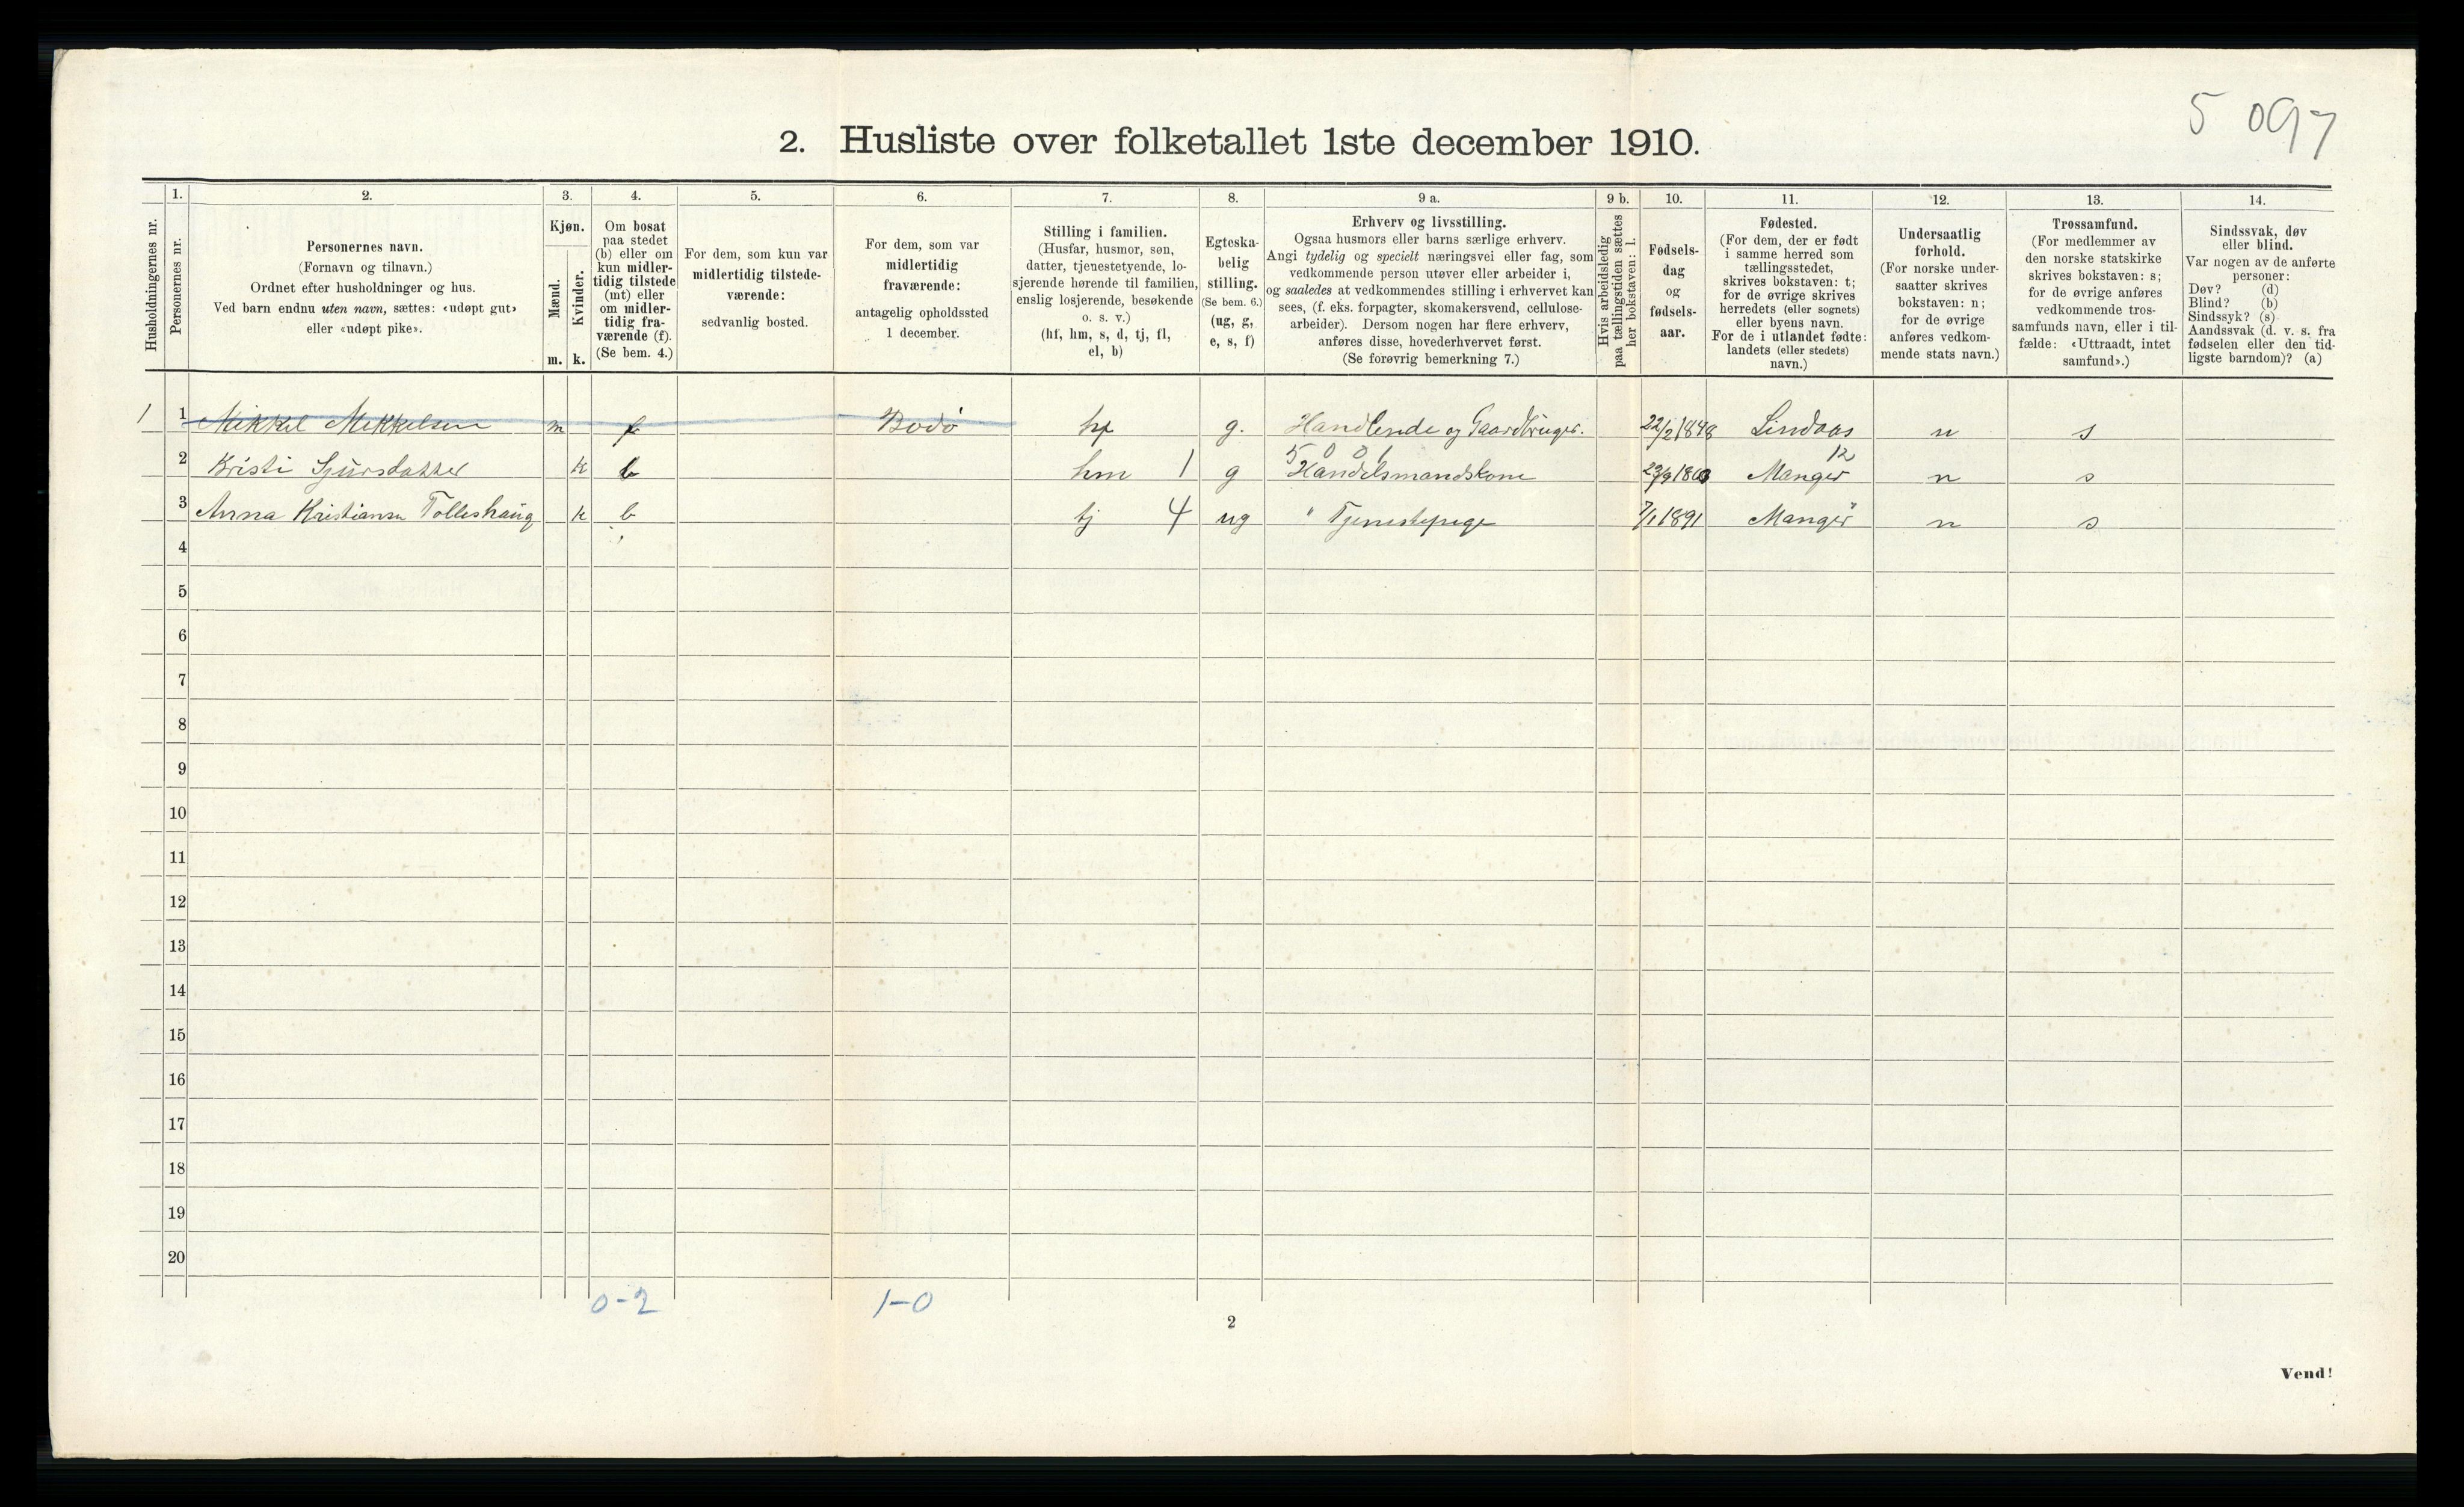 5 097
2. Husliste over folketallet 1ste december 1910.
Husholdningernes nr.
1.
Personernes nr.
2.
Personernes navn.
(Fornavn og tilnavn.)
Ordnet efter husholdninger og hus.
Ved barn endnu uten navn, sættes: «udøpt gut»
eller «udøpt pike».
3.
Kjøn.
Mænd.
Kvinder.
m. k.
4.
Om bosat
paa stedet
(b) eller om
kun midler-
tidig tilstede
(mt) eller
om midler-
tidig fra-
værende (f).
(Se bem. 4.)
5.
For dem, som kun var
midlertidig tilstede-
værende:
sedvanlig bosted.
6.
For dem, som var
midlertidig
fraværende:
antagelig opholdssted
1 december.
7.
Stilling i familien.
(Husfar, husmor, søn,
datter, tjenestetyende, lo-
sjerende hørende til familien,
enslig losjerende, besøkende
o. s. v.)
(hf, hm, s, d, tj, fl,
el, b)
8.
Egteska-
belig
stilling.
(Se bem. 6.)
(ug, g,
e, s, f)
9 a.
Erhverv og livsstilling.
Ogsaa husmors eller barns særlige erhverv.
Angi tydelig og specielt næringsvei eller fag, som
vedkommende person utøver eller arbeider i,
og saaledes at vedkommendes stilling i erhvervet kan
sees, (f. eks. forpagter, skomakersvend, cellulose-
arbeider). Dersom nogen har flere erhverv,
anføres disse, hovederhvervet først.
(Se forøvrig bemerkning 7.)
9 b.
Hvis arbeidsledig
paa tællingstiden sættes
her bokstaven: l.
10.
Fødsels-
dag
og
fødsels-
aar.
11.
Fødested.
(For dem, der er født
i samme herred som
tællingsstedet,
skrives bokstaven: t;
for de øvrige skrives
herredets (eller sognets)
eller byens navn.
For de i utlandet fødte:
landets (eller stedets)
navn.)
12.
Undersaatlig
forhold.
(For norske under-
saatter skrives
bokstaven: n;
for de øvrige
anføres vedkom-
mende stats navn.)
13.
Trossamfund.
(For medlemmer av
den norske statskirke
skrives bokstaven: s;
for de øvrige anføres
vedkommende tros-
samfunds navn, eller i til-
fælde: «Uttraadt, intet
samfund».)
14.
Sindssvak, døv
eller blind.
Var nogen av de anførte
personer:
Døv? (d)
Blind? (b)
Sindssyk? (s)
Aandssvak (d. v. s. fra
fødselen eller den tid-
ligste barndom)? (a)
1 1 Mikkel Mikkelsen m f Bodø hf g. Handlende og Gaardbruger. 22/2 1848 Lindaas n s
5 0 0 1 12
2 Kristi Sjursdatter k b hm 1 g Handelsmandskone 23/9 1860 Manger n s
3 Anna Kristiansen Tolleshaug k b tj 4 ug " Tjenestepige 7/1 1891 Manger n s
4
5
6
7
8
9
10
11
12
13
14
15
16
17
18
19
20
0-2 1-0
2
Vend!